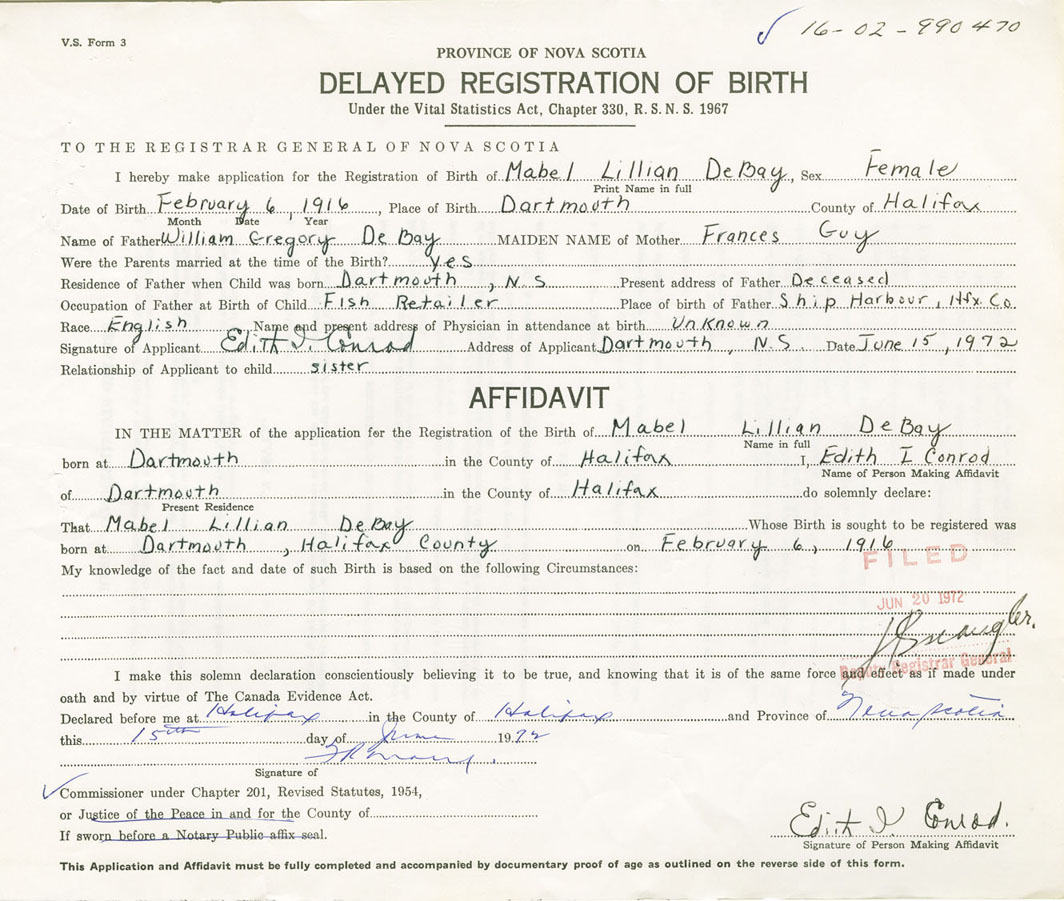 16-02-990470
V.S. Form 3
PROVINCE OF NOVA SCOTIA
DELAYED REGISTRATION OF BIRTH
Under the Vital Statistics Act, Chapter 330, R. S. N. S. 1967
TO THE REGISTRAR GENERAL OF NOVA SCOTIA
I hereby make application for the Registration of Birth of Mabel Lillian DeBay, Sex Female
Print Name in full
Date of Birth February 6, 1916, Place of Birth Dartmouth County of Halifax
Month Date Year
Name of Father William Gregory De Bay MAIDEN NAME of Mother Frances Guy
Were the Parents married at the time of the Birth? Yes
Residence of Father when Child was born Dartmouth, N.S Present address of Father Deceased
Occupation of Father at Birth of Child Fish Retailer Place of birth of Father Ship Harbour, Hfx. Co.
Race English Name and present address of Physician in attendance at birth Unknown
Signature of Applicant Edith I. Conrod Address of Applicant Dartmouth, N.S. Date June 15, 1972
Relationship of Applicant to child sister
AFFIDAVIT
IN THE MATTER of the application for the Registration of the Birth of Mabel Lillian DeBay
Name in full
born at Dartmouth in the County of Halifax I, Edith I Conrod
Name of Person Making Affidavit
of Dartmouth in the County of Halifax do solemnly declare:
Present Residence
That Mabel Lillian DeBay Whose Birth is sought to be registered was
born at Dartmouth, Halifax County on February 6, 1916
FILED
My knowledge of the fact and date of such Birth is based on the following Circumstances:
JUN 20 1972
Deputy Registrar General
I make this solemn declaration conscientiously believing it to be true, and knowing that it is of the same force and effect as if made under
oath and by virtue of The Canada Evidence Act.
Declared before me at Halifax in the County of Halifax and Province of Nova Scotia
this 15th day of June 1972
Signature of
Commissioner under Chapter 201, Revised Statutes, 1954,
or Justice of the Peace in and for the County of
If sworn before a Notary Public affix seal.
Edith I Conrod.
Signature of Person Making Affidavit
This Application and Affidavit must be fully completed and accompanied by documentary proof of age as outlined on the reverse side of this form.